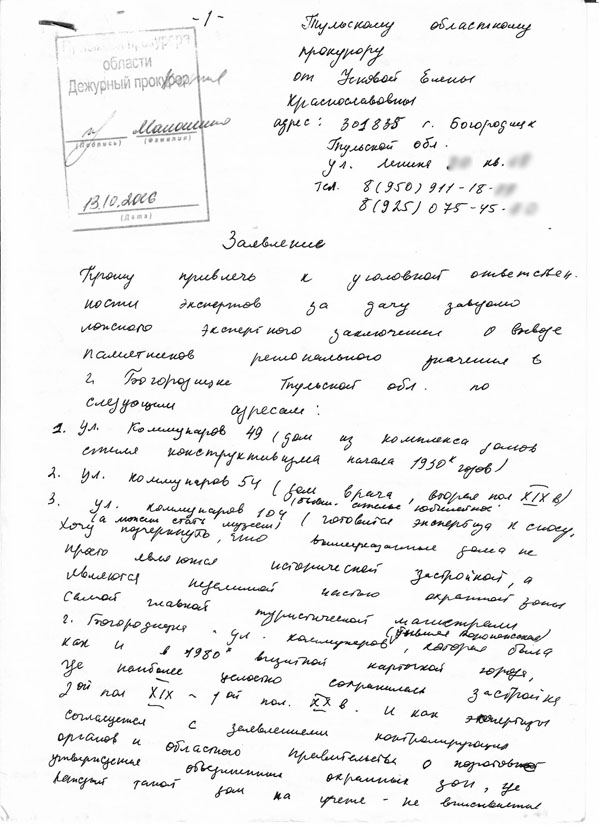 -1-
Тульскому областному
прокурору
от Усковой Елены
Храснославовны
адрес: 301835 г. Богородицк
Тульской обл.
ул. Ленина кв.
тел. 8(950) 911-18-
8(925) 075-45-
прокурор
области
Дежурный прокурор
(Подпись) (Фамилия)
13.10.2016
(Дата)
Заявление
Прошу привлечь к уголовной ответствен.
ности экспертов за дачу заведомо
ложного экспертного заключения о выводе
памятников регионального значения в
г. Богородицке Тульской обл. по
следующим адресам:
1. ул. Коммунаров 49 (дом из комплекса домов
стиля конструктивизма начала 1930х годов)
2. ул. Коммунаров 54 (дом врача, вторая пол XIX в)
3. ул. Коммунаров 104 (бывш.
(а может стать музеем) (готовится экспертиза к сносу,
Хочу подчеркнуть, что вышеуказанные дома не
просто являются исторической застройкой, а
являются неделимой частью охранной зоны
самой главной туристической магистрали
г. Богородицка - ул. Коммунаров (бывшая Воронежская), которая была
как и в 1980х визитной карточкой города,
где наиболее целостно сохранилась застройка
2ой пол XIX - 1ой пол. XX в. И как экспертизы
согласуется с заявлениями контролирующих
органов и областного правительства о подготовке
утверждения объединённых охранных зон, где
каждый такой дом на учете - не вписывается